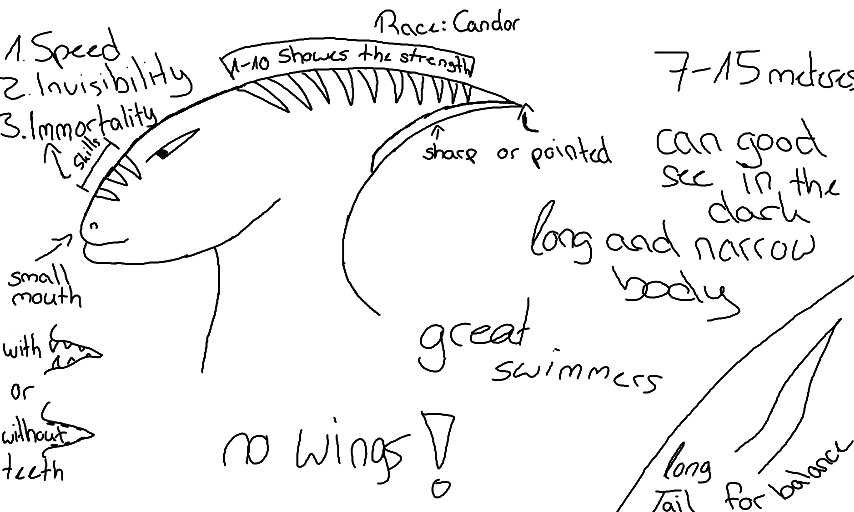 Race: Candor
1-10 Showes the strength
1. Speed
2. Invisibility
3. Immortality
Skills
7-15 meteres
sharp or pointed
can good
see in the
dark
long and narrow
body
small
mouth
with
or
without
teeth
great
swimmers
no wings!
long
Tail for balance